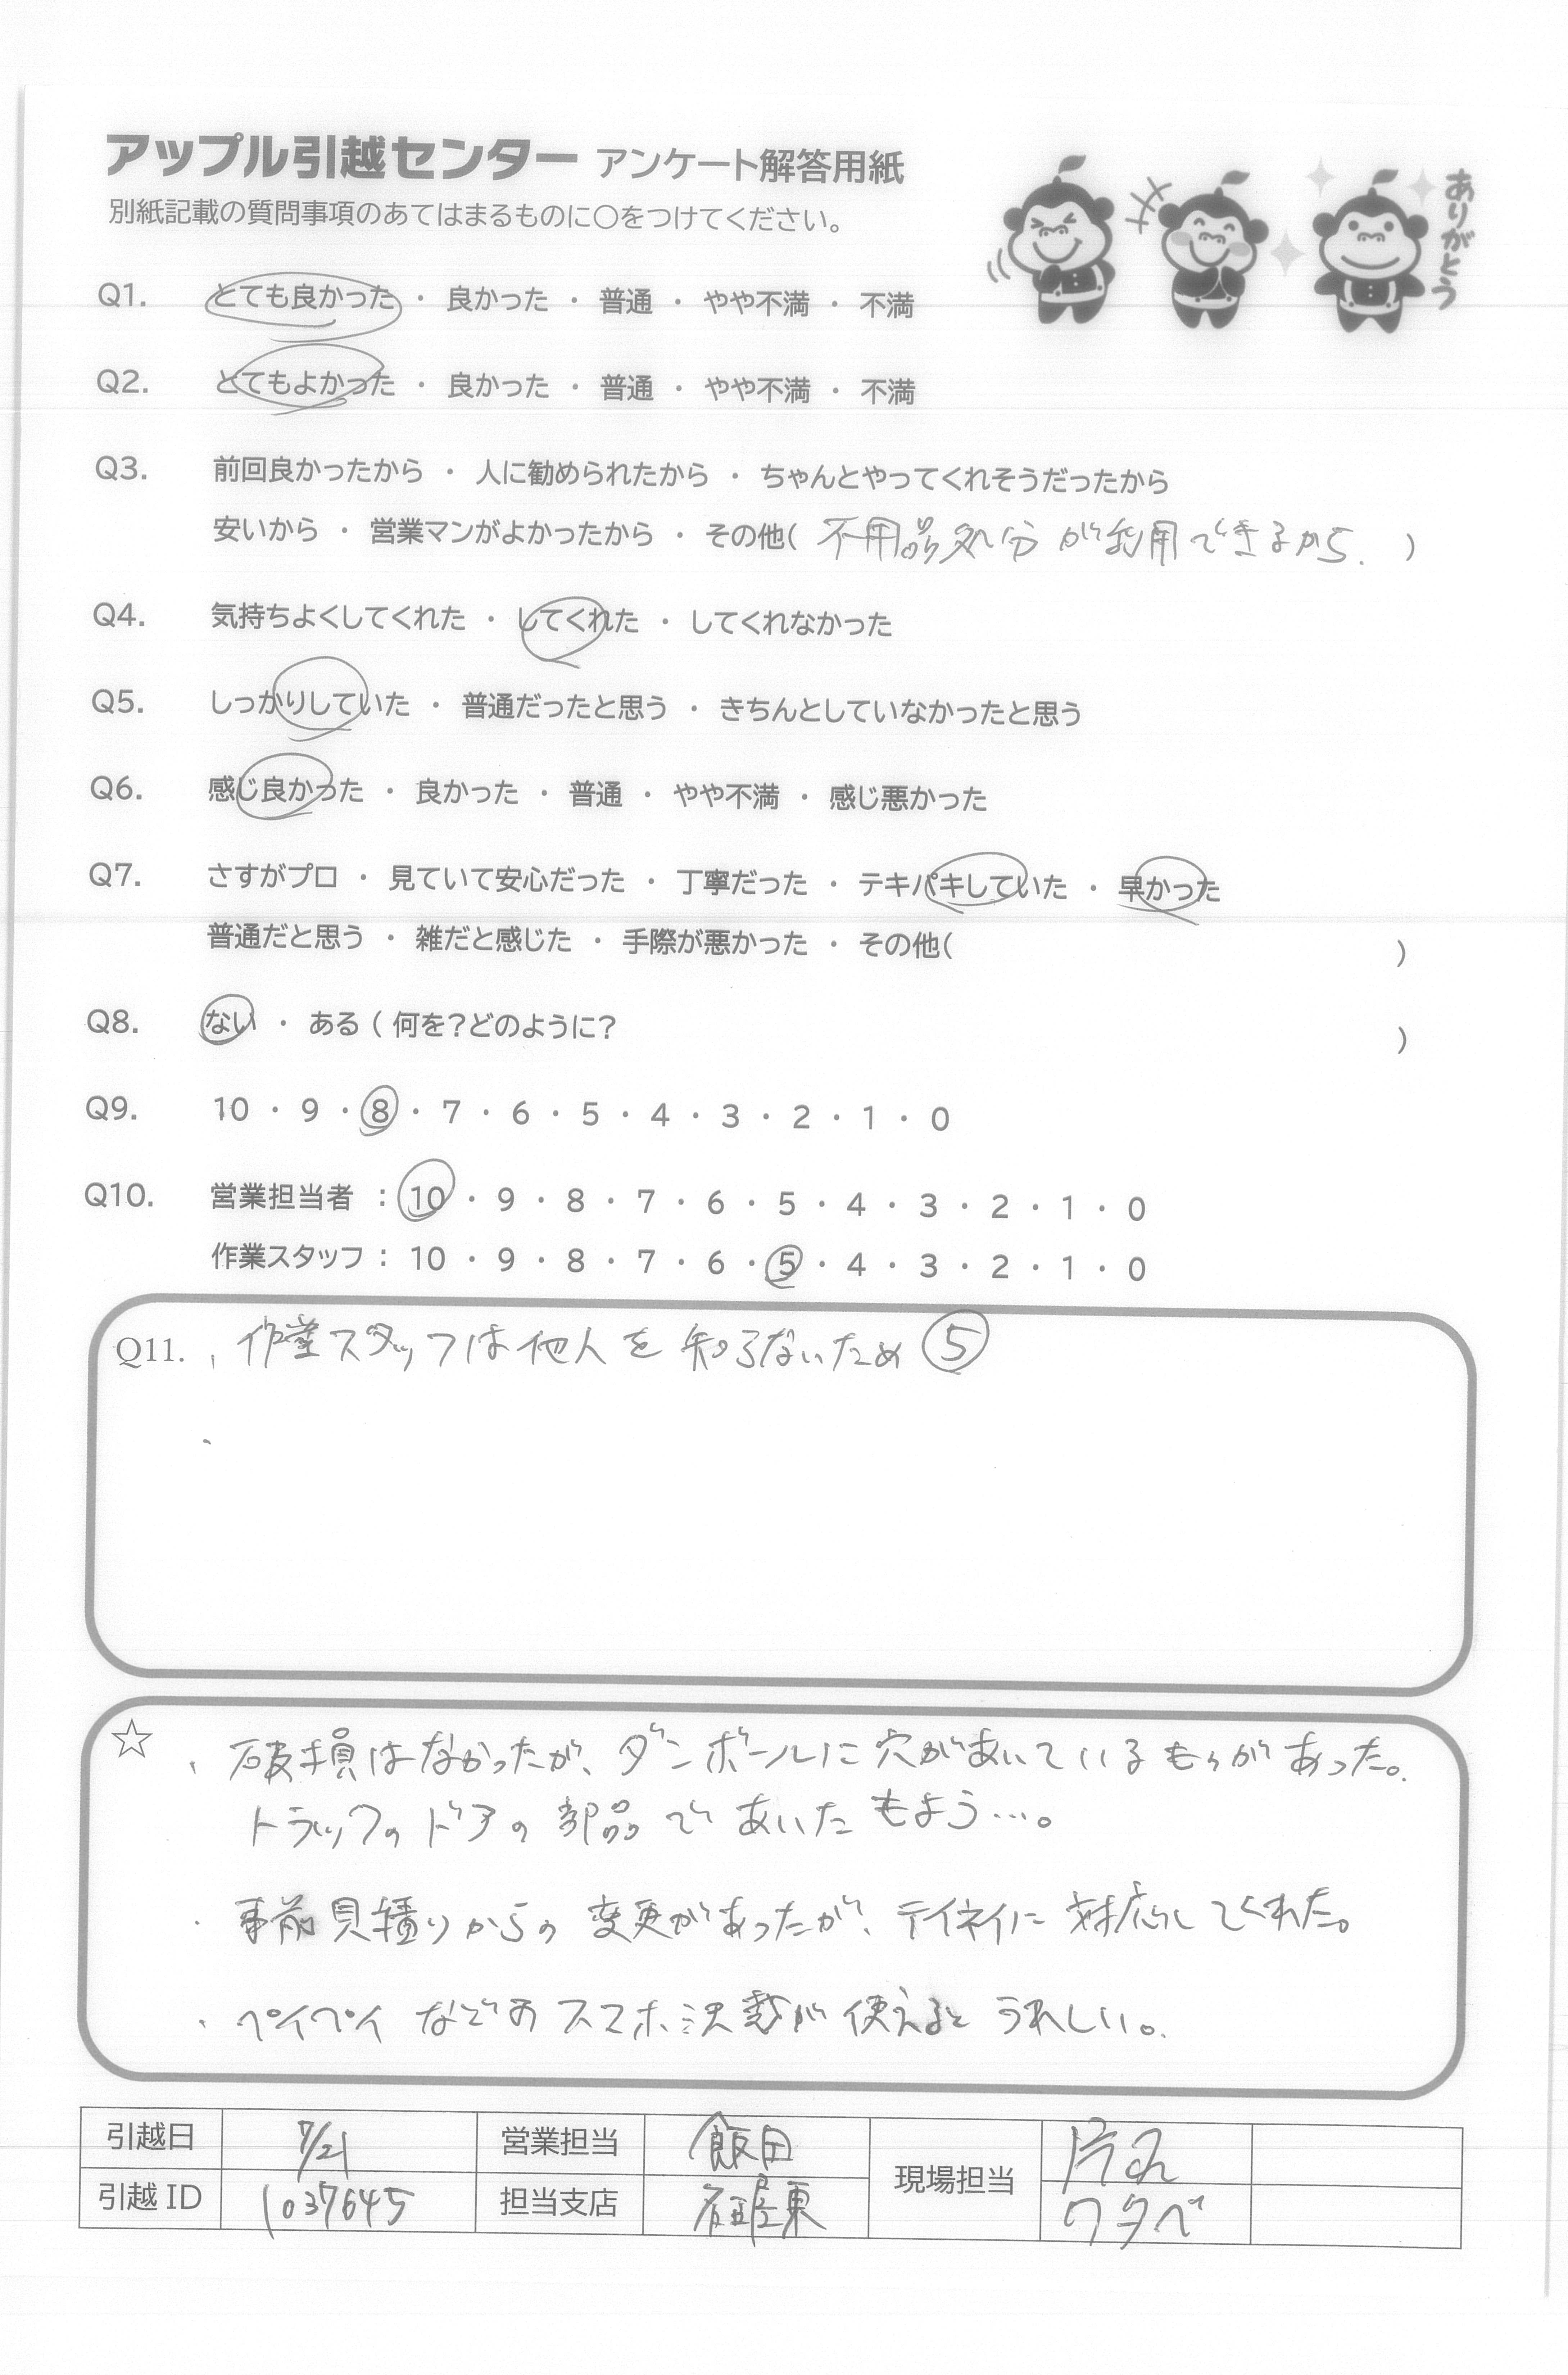 アップル引越センター アンケート解答用紙
別紙記載の質問事項のあてはまるものに○をつけてください。
ありがとう
Q1. とても良かった ・ 良かった ・ 普通 ・ やや不満 ・ 不満
Q2. とてもよかった ・ 良かった ・ 普通 ・ やや不満 ・ 不満
Q3. 前回良かったから ・ 人に勧められたから ・ ちゃんとやってくれそうだったから
安いから ・ 営業マンがよかったから ・ その他( 不用品処分が利用できるから. )
Q4. 気持ちよくしてくれた ・ してくれた ・ してくれなかった
Q5. しっかりしていた ・ 普通だったと思う ・ きちんとしていなかったと思う
Q6. 感じ良かった ・ 良かった ・ 普通 ・ やや不満 ・ 感じ悪かった
Q7. さすがプロ ・ 見ていて安心だった ・ 丁寧だった ・ テキパキしていた ・ 早かった
普通だと思う ・ 雑だと感じた ・ 手際が悪かった ・ その他( )
Q8. ない ・ ある ( 何を?どのように? )
Q9. 10 ・ 9 ・ 8 ・ 7 ・ 6 ・ 5 ・ 4 ・ 3 ・ 2 ・ 1 ・ 0
Q10. 営業担当者 : 10 ・ 9 ・ 8 ・ 7 ・ 6 ・ 5 ・ 4 ・ 3 ・ 2 ・ 1 ・ 0
作業スタッフ : 10 ・ 9 ・ 8 ・ 7 ・ 6 ・ 5 ・ 4 ・ 3 ・ 2 ・ 1 ・ 0
Q11. 、作業スタッフは他人を知らないため ⑤
☆ 、破損はなかったが、ダンボールに穴があいているものがあった。
トラックのドアの部品であいたもよう…。
・事前見積りからの変更があったが、テイネイに対応してくれた。
、ペイペイなどのスマホ決裁が使えるとうれしい。
引越日 7/21 営業担当 飯田 現場担当
引越ID 1037645 担当支店 東 ワタベ